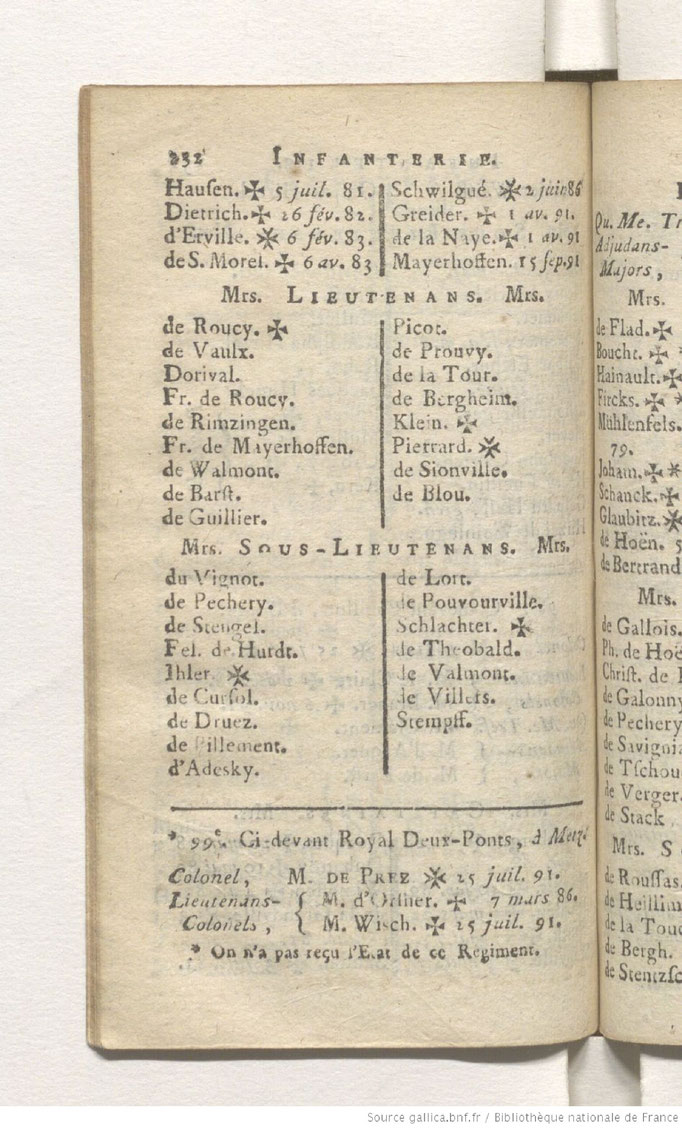 232 INFANTERIE.
Hauſen. ✠ 5 juil. 81.
Dietrich. ✠ 26 fév. 82.
d'Erville. ※ 6 fév. 83.
de S. Morel. ✠ 6 av. 83
Schwilgué. ※ 2 juin 86
Greider. ✠ 1 av. 91.
de la Naye. ✠ 1 av. 91
Mayerhoffen. 15 ſep. 91
Mrs. LIEUTENANS. Mrs.
de Roucy. ✠
de Vaulx.
Dorival.
Fr. de Roucy.
de Rimzingen.
Fr. de Mayerhoffen.
de Walmont.
de Barſt.
de Guillier.
Picot.
de Prouvy.
de la Tour.
de Bergheim.
Klein. ✠
Pierrard. ※
de Sionville.
de Blou.
Mrs. SOUS-LIEUTENANS. Mrs.
du Vignot.
de Pechery.
de Stengel.
Fel. de Hurdt.
Ihler. ※
de Curſol.
de Druez.
de Pillement.
d'Adesky.
de Lort.
de Pouvourville.
Schlachter. ✠
de Theobald.
de Valmont.
de Villers.
Stempff.
* 99e. Ci-devant Royal Deux-Ponts, à Metz
Colonel, M. DE PREZ ※ 25 juil. 91.
Lieutenans- M. d'Orlner. ✠ 7 mars 86.
Colonels, M. Wisch. ✠ 25 juil. 91.
* On n'a pas reçu l'Etat de ce Regiment.
Qu. Me. Tr
Adjudans-
Majors,
Mrs.
de Flad. ✠
Boucht. ✠
Hainault. ✠
Fircks. ✠
Mühlenfels.
79.
Joham. ✠
Schanck. ✠
Glaubitz. ※
de Hoën. 5
de Bertrand
Mrs.
de Gallois.
Ph. de Hoë
Chriſt. de
de Galonny
de Pechery
de Savignia
de Tſchou
de Verger
de Stack
Mrs. S
de Rouſſas.
de Heillim
de la Touc
de Bergh.
de Stentzſc
Source gallica.bnf.fr / Bibliothèque nationale de France